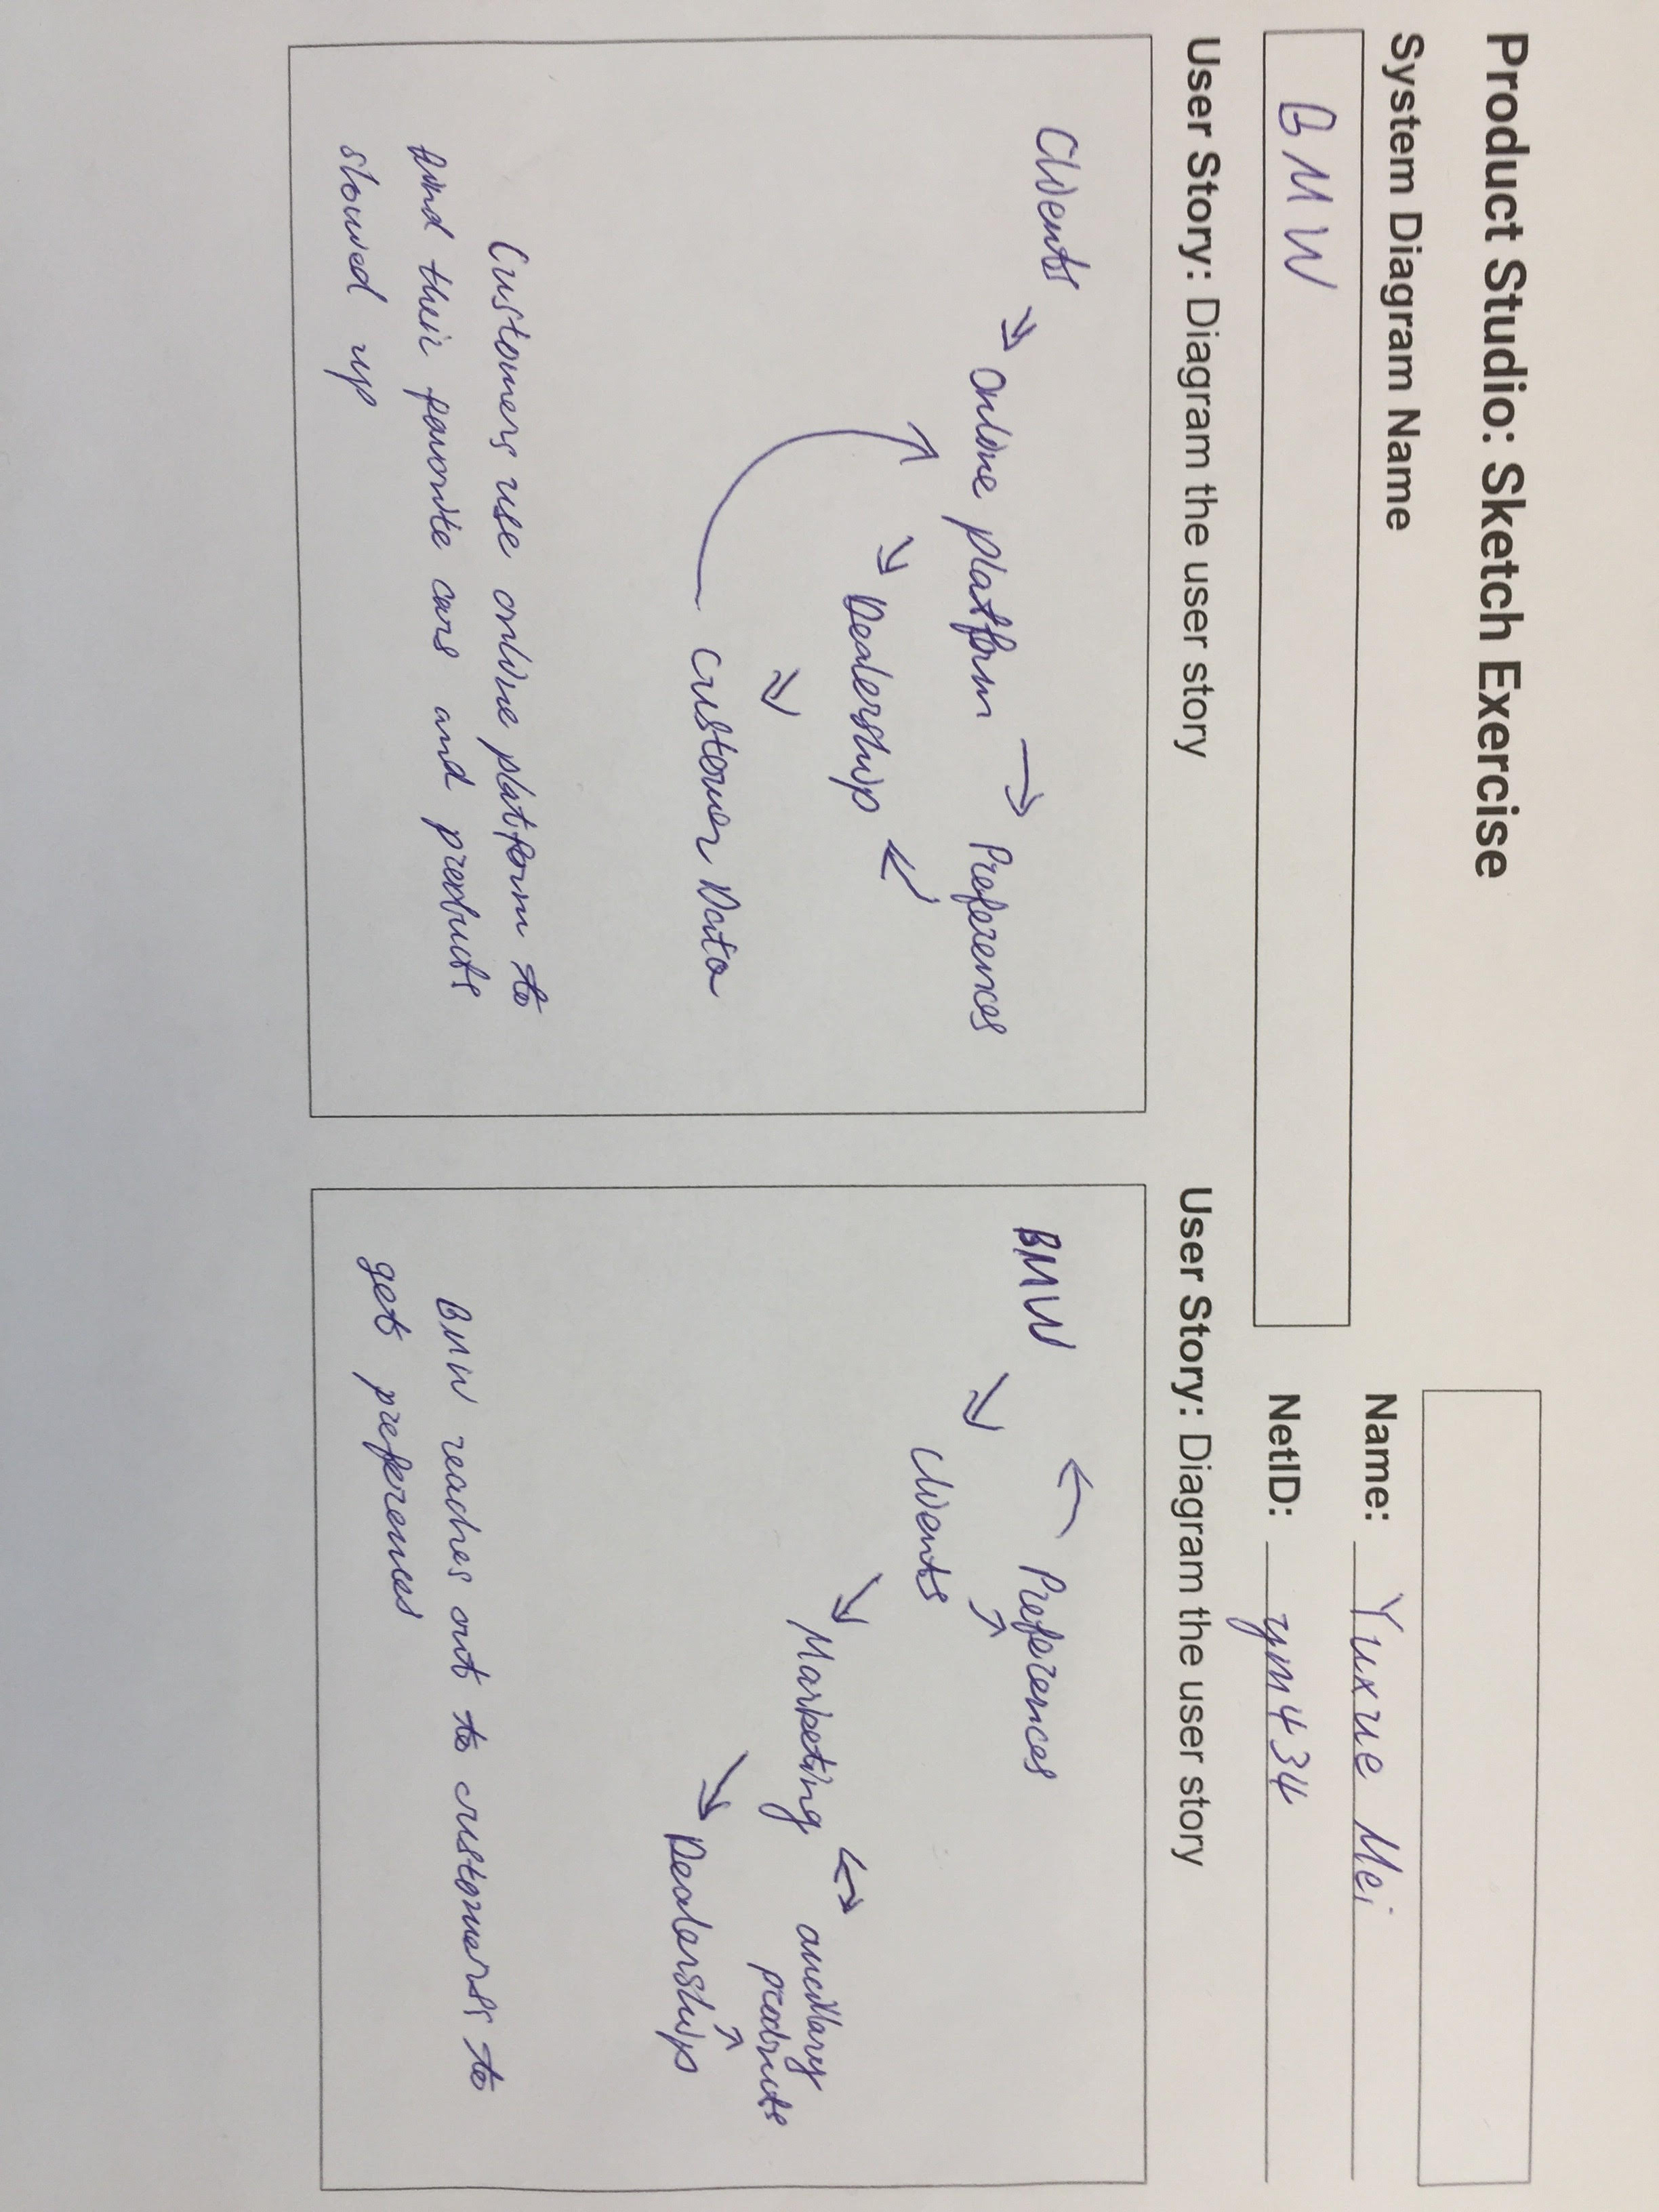 Product Studio: Sketch Exercise
System Diagram Name
BMW
Name: Yuxue Mei
NetID: ym434
User Story: Diagram the user story
Clients
online platform
Preferences
Dealership
Customer Data
Customers use online platform to
find their favorite cars and products
showed up
User Story: Diagram the user story
BMW
Preferences
Clients
Marketing
ancillary
products
Dealership
BMW reaches out to customers to
get preferences